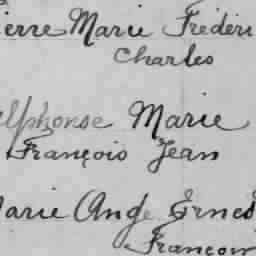 ierre Marie Fréderi
Charles
Alphonse Marie
François Jean
Marie Ange Ernes
Françoi